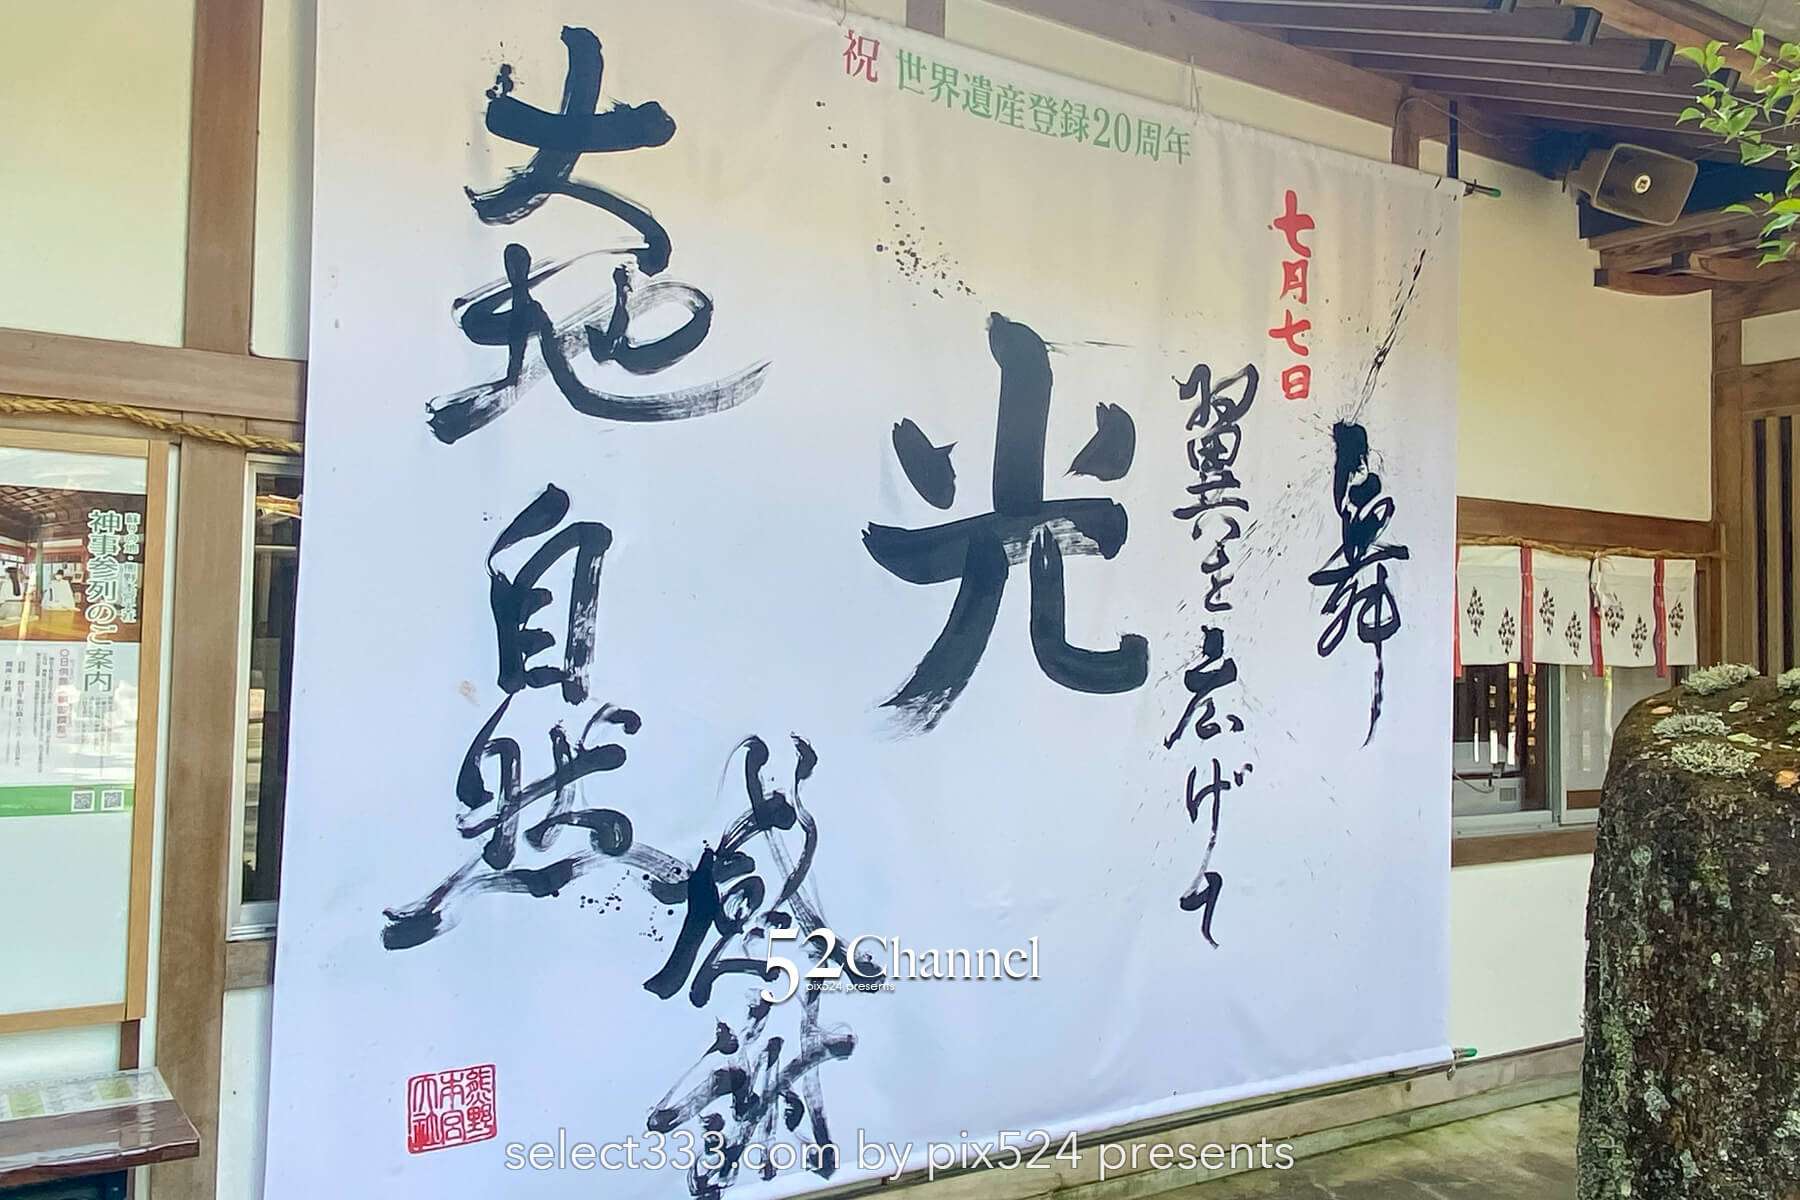 祝 世界遺産登録20周年
七月七日
舞
翼を広げて
光
大地
自然
感謝
熊野
本宮
大社
神事参列のご案内
52Channel
pix524 presents
select333.com by pix524 presents